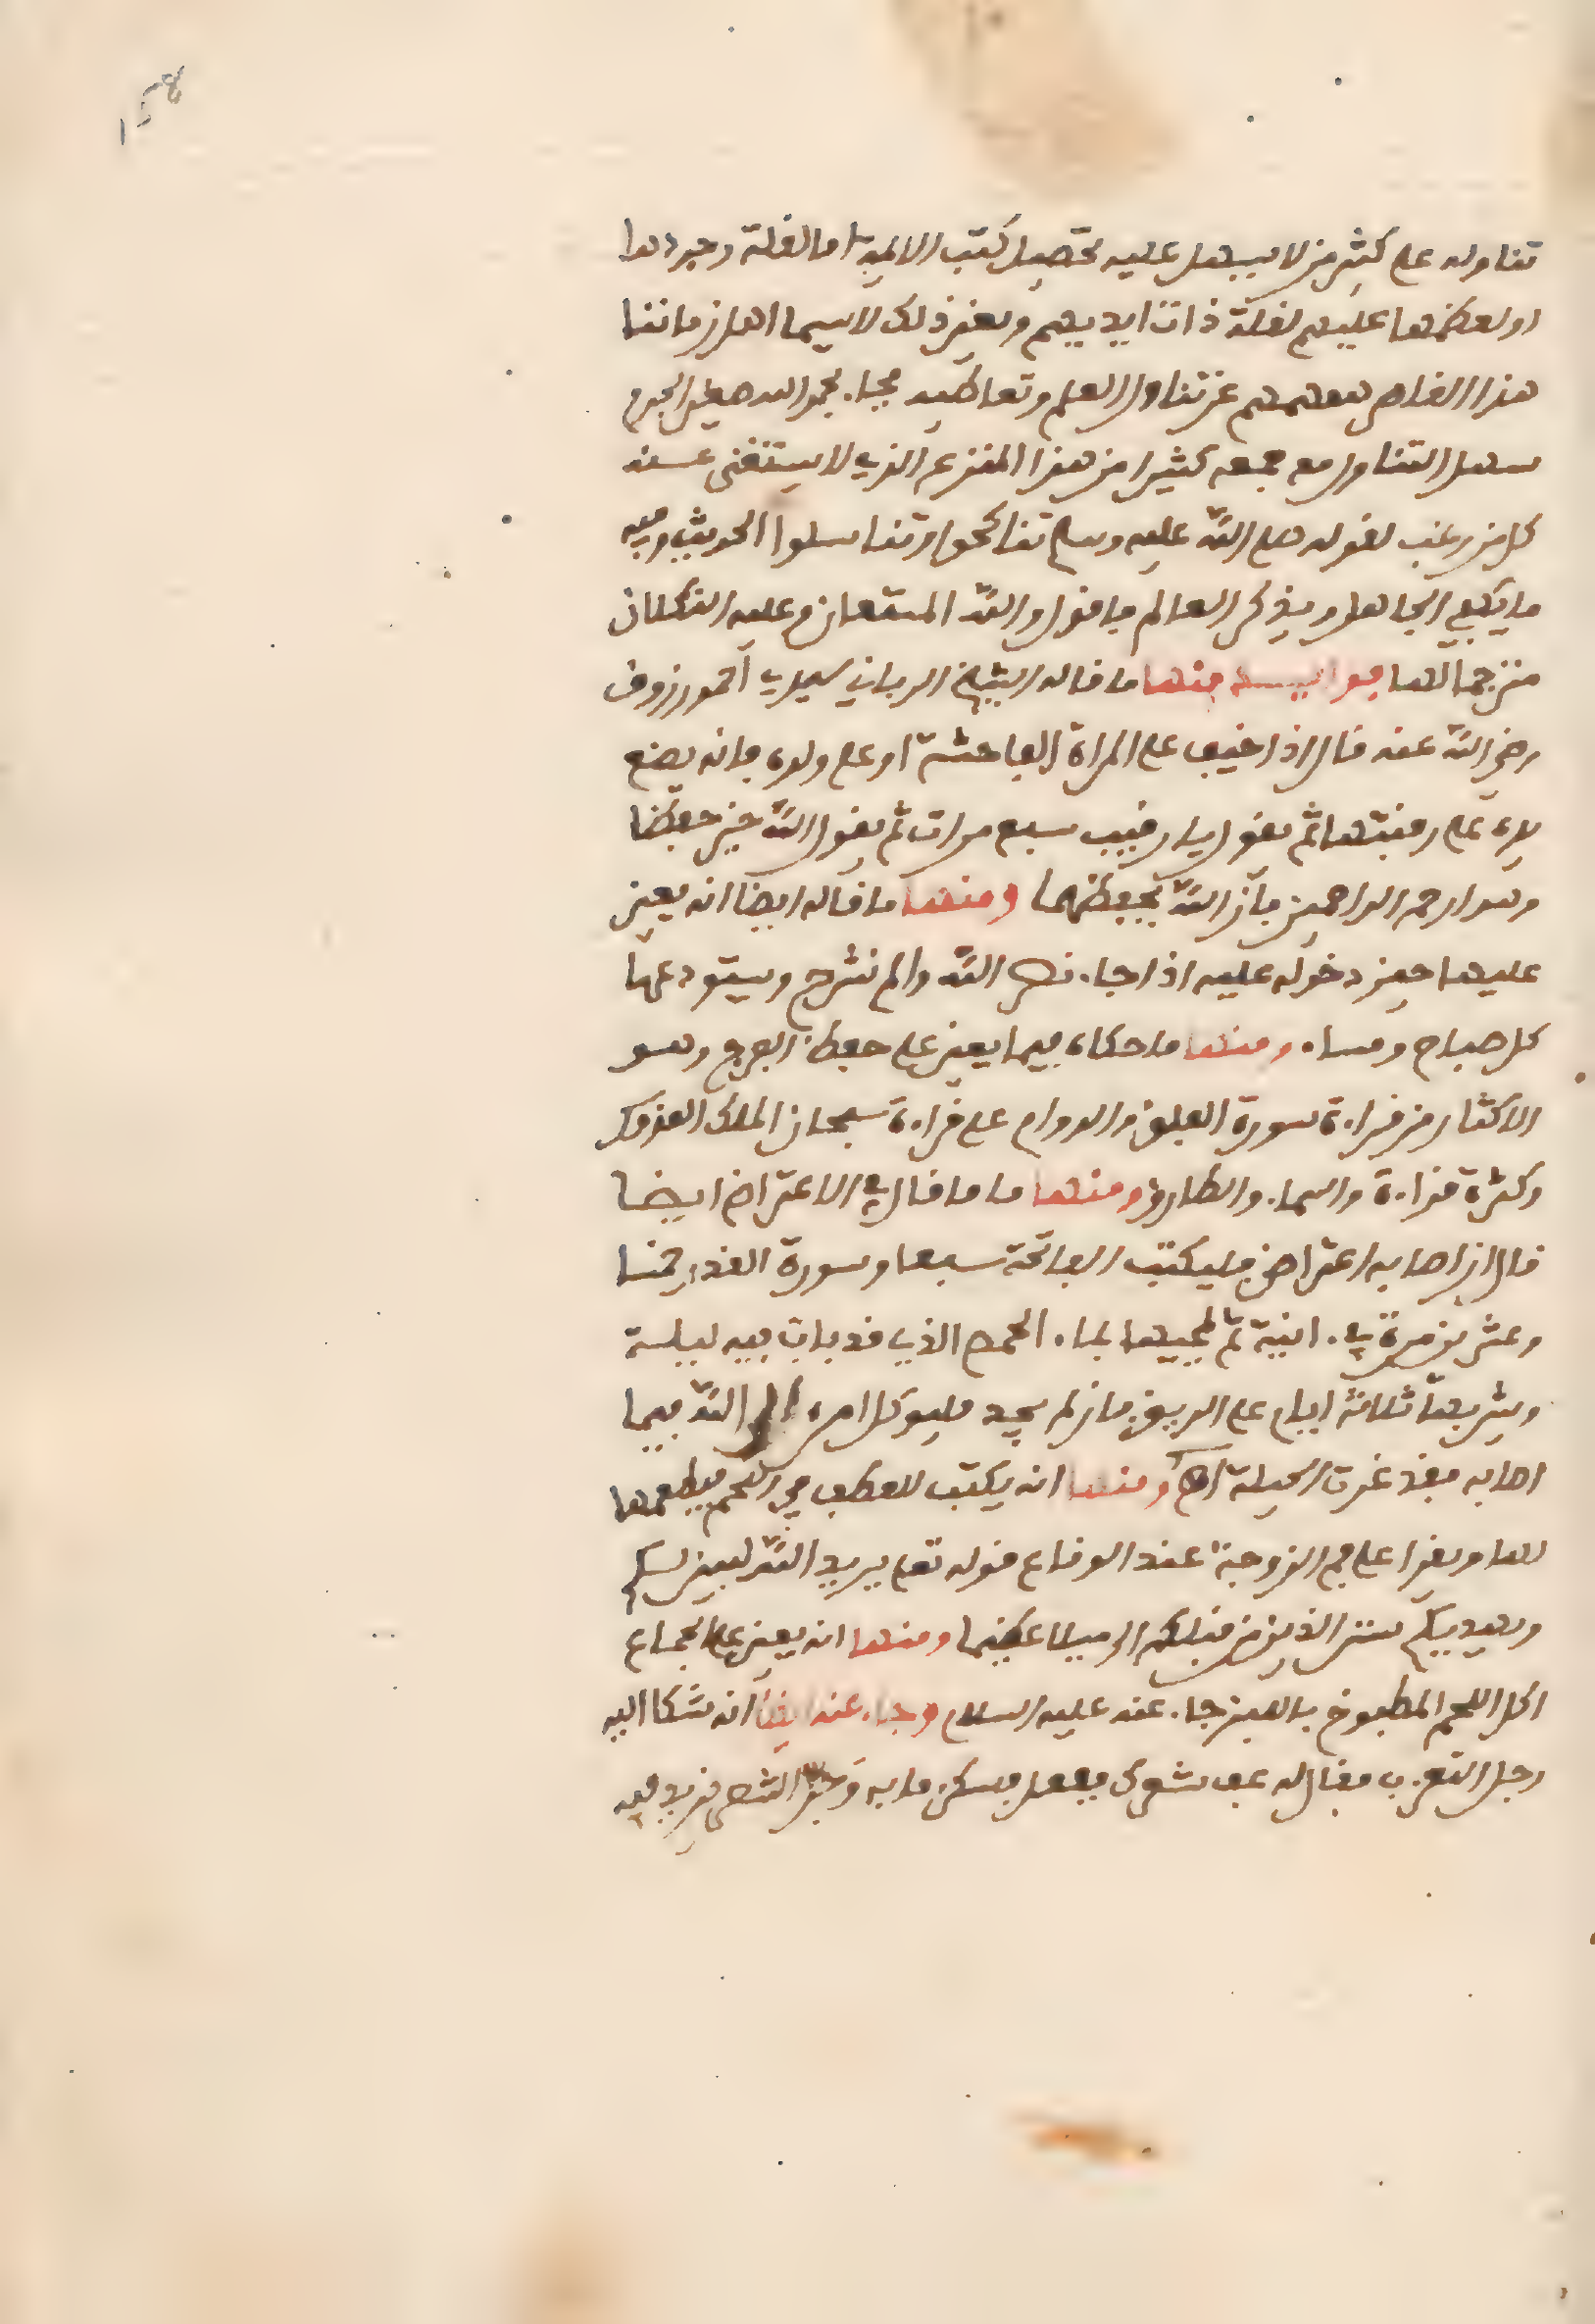 158
تناوله على كثير من لا يسهل عليه تحصيل كتب الايمة اما لقلة وجودها
او لعظمها عليهم لقلة ذات ايديهم ولغير ذلك لا سيما اهل زماننا
هذا القاصر هممهم عن تناول العلم وتعاطيه فجاء بحمد الله صغير الجرم
سهل التناول مع جمعه كثيرا من هذا المنزع الذي لا يستغنى عنه
كل من رغب لقوله صلى الله عليه وسلم تناكحوا وتناسلوا الحديث وفيه
ما يكفي الجاهل ويذكر العالم فاقول والله المستعان وعليه التكلان
مترجما لها فوايد منها ما قاله الشيخ الرباني سيدي احمد زروق
رضي الله عنه قال اذا خيف على المراة الفاحشة او على ولده فانه يضع
يده على رقبتها ثم يقول يا رقيب سبع مرات ثم يقول الله خير حفظا
وهو ارحم الراحمين فان الله يحفظهما ومنها ما قاله ايضا انه يعين
عليها حين دخوله عليه اذا جاء الله والم نشرح ويستودعها
كل صباح ومساء ومنها ما حكاه فيما يعين على حفظ الفرج وهو
الاكثار من قراءة سورة الفلق والدوام على قراءة سبحان الملك القدوس
وكثرة قراءة والسماء والطارق ومنها ما ما قال في الاعتراض ايضا
قال ان اصابه اعتراض فليكتب الفاتحة سبعا وسورة القدر خمسا
وعشرين مرة في انية ثم يمحيها بماء الحمص الذي قد بات فيه ليلة
ويشربها ثلاثة ايام على الريق فان لم يجد فليوكل امره الى الله فيما
اصابه فقد عزت الحيلة اهـ ومنها انه يكتب للعطف في اللحم فيطعمها
لها ويقرا على فم الزوجة عند الوقاع قوله تعلى يريد الله ليبين لكم
ويهديكم سنن الذين من قبلكم الى ميلا عظيما ومنها انه يعين على الجماع
اكل اللحم المطبوخ باللبن جاء عنه عليه السلام وجاء عنه ايضا انه شكا اليه
رجل التعزب فقال له عف شعرك ففعل فسكن ما به وحلق الشعر يزيد فيه